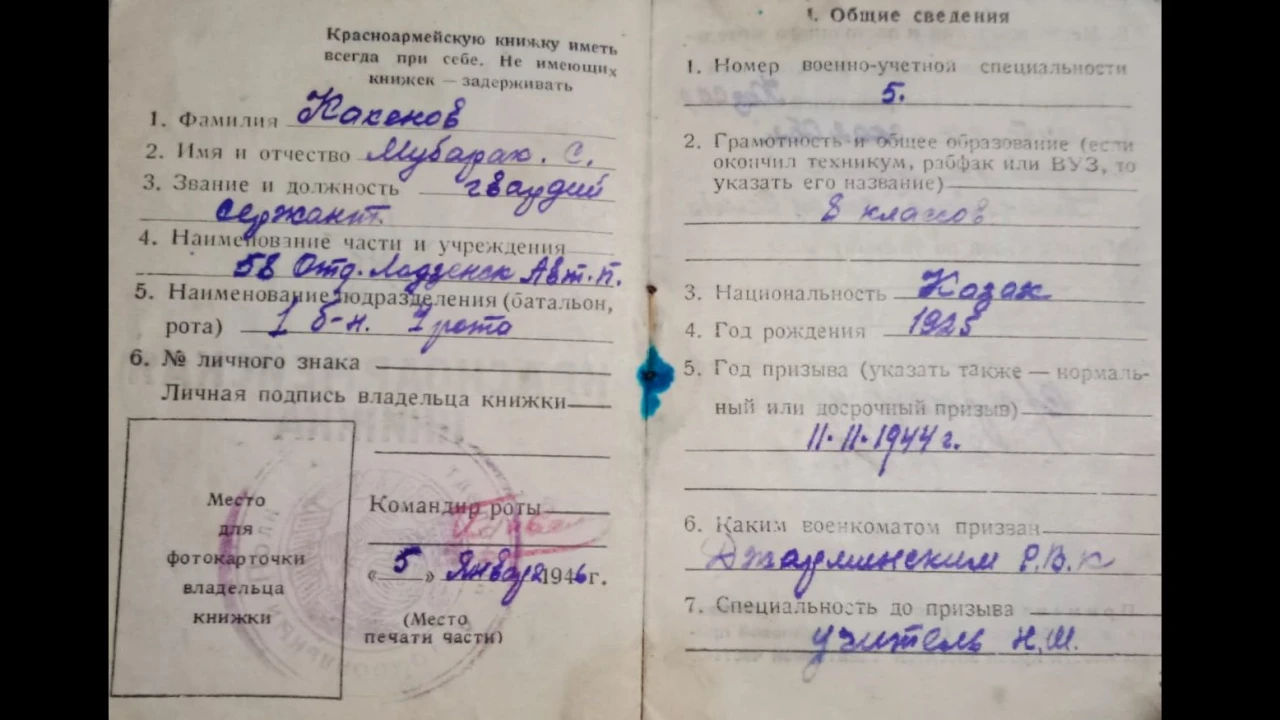 Красноармейскую книжку иметь
всегда при себе. Не имеющих
книжек — задерживать
1. Фамилия Какенов
2. Имя и отчество Мубарак. С.
3. Звание и должность гвардий
сержант.
4. Наименование части и учреждения
58 Отд. Авт. п.
5. Наименование подразделения (батальон,
рота) 1 б-н. рота
6. № личного знака
Личная подпись владельца книжки
Место
для
фотокарточки
владельца
книжки
Командир роты
«5» Января 1946 г.
(Место
печати части)
I. Общие сведения
1. Номер военно-учетной специальности
5.
2. Грамотность и общее образование (если
окончил техникум, рабфак или ВУЗ, то
указать его название)
8 класов
3. Национальность Казак
4. Год рождения 1925
5. Год призыва (указать также — нормаль-
ный или досрочный призыв)
11.11.1944 г.
6. Каким военкоматом призван
Джарминским Р.В.К
7. Специальность до призыва
учитель Н.Ш.